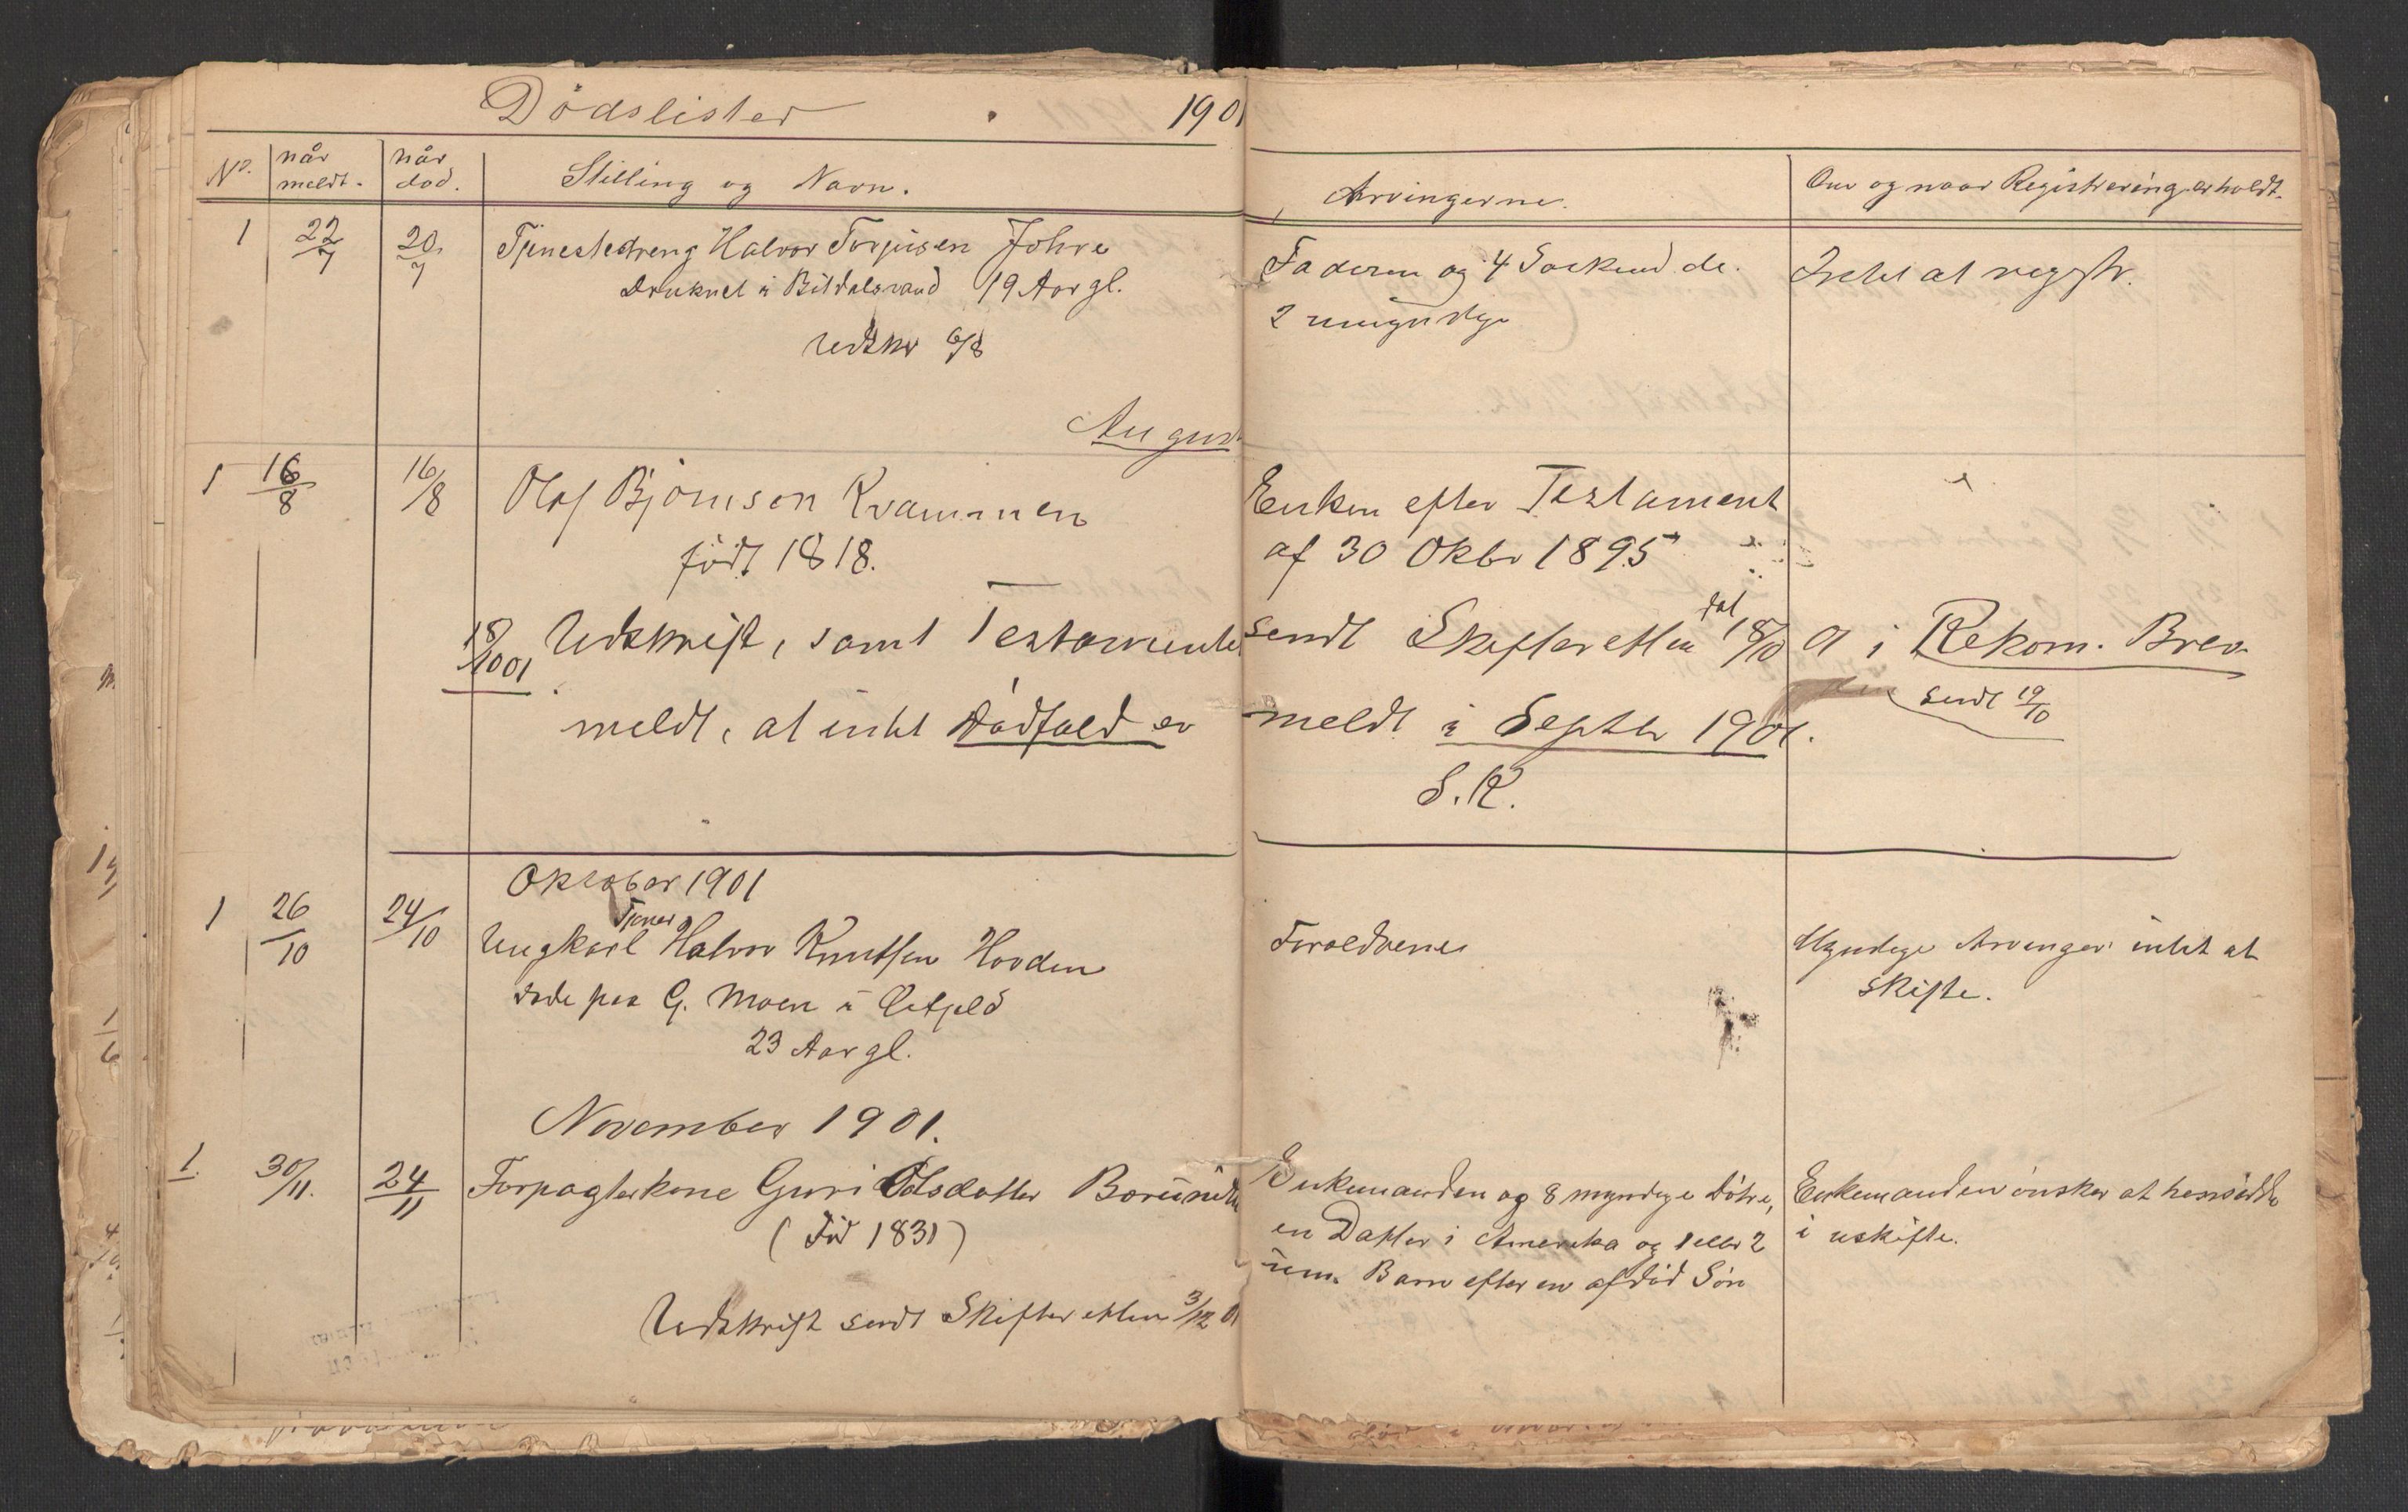 Dödslister 1901
No. når meldt. når död. Stilling og Navn. Arvingerne. Om og naar Registrering er holdt.
1 22/7 20/7 Tjenestedreng Halvor Torjusen Johre
Druknet i Bitdalsvand 19 Aar gl.
Udskr 6/8
Faderen og 4 Søskend. de.
2 umyndige
Intet at regstr.
August
1 16/8 16/8 Olaf Björnsen Kvammen
født 1818.
Enken efter Testament
af 30 Oktbr 1895
18/10 01 Udskrift, samt Testamente sendt Skifteretten dat 18/10 01 i Rekom. Brev.
sendt 19/10
meldt, at intet Dødfald er meldt i Septbr 1901.
S.K.
Oktober 1901
1 26/10 24/10 Ungkarl Tjener Halvor Knutsen Hovden
døde paa G. Moen i
23 Aar gl.
Forældrene
Myndige Arvinger intet at
skifte.
November 1901.
1. 30/11. 24/11 Forpagterkone Guri Olsdatter
(Fød 1831)
Enkemanden og 8 myndige Døtre,
en Datter i Amerika og 1 eller 2
um. Barn efter en afdød Søn
Enkemanden ønsker at hensidde
i uskifte.
Udskrift sendt Skifteretten 3/12 01